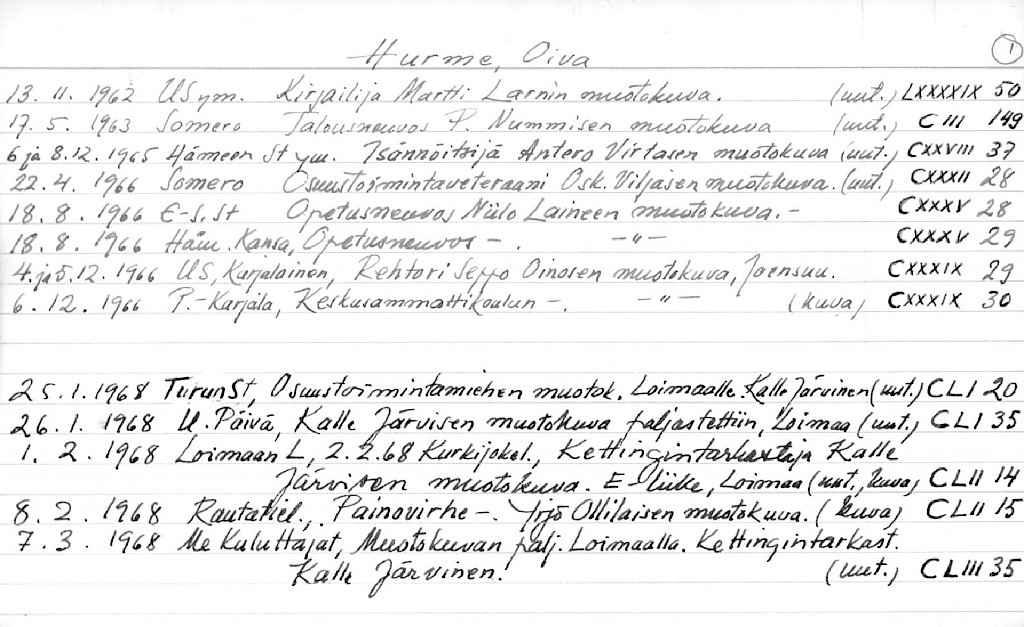 Hurme, Oiva 1
13. 11. 1962 US ym. Kirjailija Martti Larnin muotokuva. (uut.) LXXXXIX 50
17. 5. 1963 Somero Talousneuvos P. Nummisen muotokuva (uut.) CIII 149
6 ja 8.12. 1965 Hämeen St ym. Isännöitsijä Antero Virtasen muotokuva (uut.) CXXVIII 37
22. 4. 1966 Somero Osuustoimintaveteraani Osk. Viljasen muotokuva. (uut.) CXXXII 28
18. 8. 1966 E-S. St Opetusneuvos Niilo Laineen muotokuva. - CXXXV 28
18. 8. 1966 Häm. Kansa, Opetusneuvos - . - " - CXXXV 29
4. ja 5.12. 1966 US, Karjalainen, Rehtori Seppo Oinosen muotokuva, Joensuu. CXXXIX 29
6. 12. 1966 P.-Karjala, Keskusammattikoulun -. - " - (kuva) CXXXIX 30
25. 1. 1968 TurunSt, Osuustoimintamiehen muotok. Loimaalle. Kalle Järvinen (uut.) CLI 20
26. 1. 1968 U. Päivä, Kalle Järvisen muotokuva paljastettiin, Loimaa (uut.) CLI 35
1. 2. 1968 Loimaan L, 2.2.68 Kurkijokel., Kettingintarkastaja Kalle
Järvisen muotokuva. E-liike, Loimaa (uut., kuva) CLII 14
8. 2. 1968 Rautatiel., Painovirhe -. Yrjö Ollilaisen muotokuva. (kuva) CLII 15
7. 3. 1968 Me Kuluttajat, Muotokuvan palj. Loimaalla. Kettingintarkast.
Kalle Järvinen. (uut.) CLIII 35